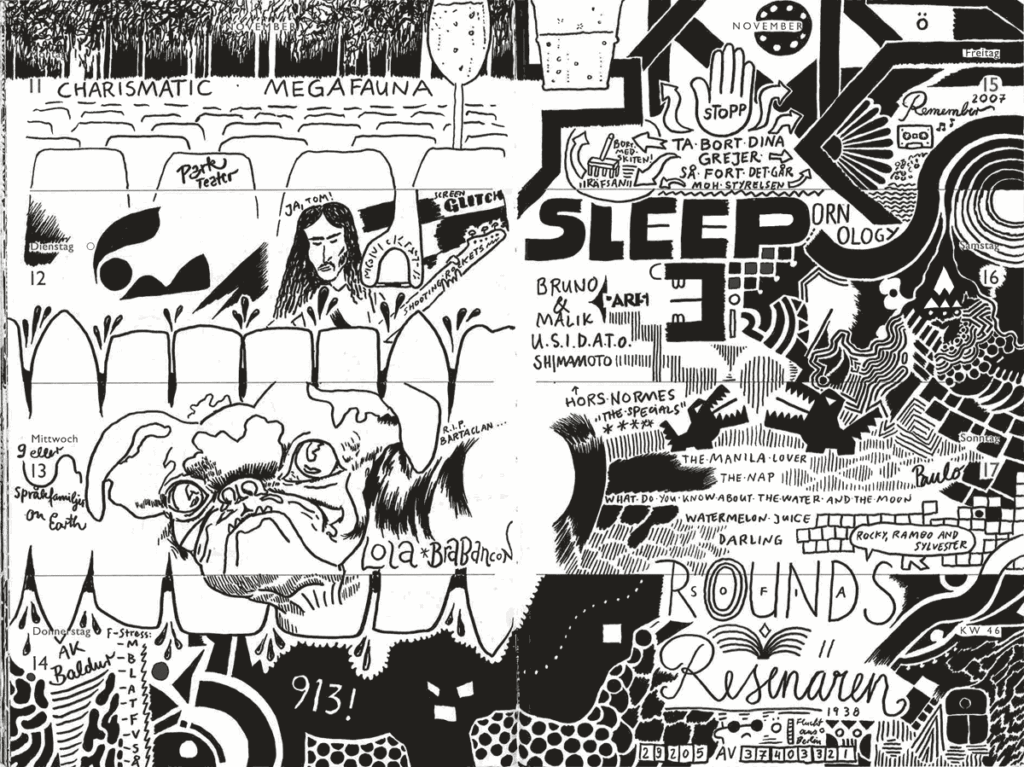 NOVEMBER
11 CHARISMATIC · MEGAFAUNA
Park
Teater
JA, TOM!
SCREEN
GLITCH
MAVERICKFESTS
Dienstag
12
Mittwoch
9 eller
13
Språkfamiljer
on Earth
R.I.P.
BARTACLAN...
LOLA * BRABANCON
Donnerstag
14
AK
Baldur
F-Stress:
M
B
L
A
T
F
V
S
913!
NOVEMBER
ö
Freitag
15
Remember
2007
STOPP
BORT
MED
SKITEN!
!!RÄFSAN!!
TA·BORT·DINA
GREJER·
SÅ·FORT·DET·GÅR
MOH·STYRELSEN
SLEEP
ORN
OLOGY
Samstag
16
BRUNO
&
MALIK
U.S.I.D.A.T.O.
SHIMAMOTO
HORS·NORMES
"THE·SPECIALS"
****
Sonntag
17
Paulo
THE·MANILA·LOVER
THE·NAP
WHAT·DO·YOU·KNOW·ABOUT·THE·WATER·AND·THE·MOON
WATERMELON·JUICE
DARLING
ROCKY, RAMBO AND
SYLVESTER
ROUNDS
SOFIA
KW 46
Resenären
1938
Flucht
aus
Berlin
29205 AV 37403321